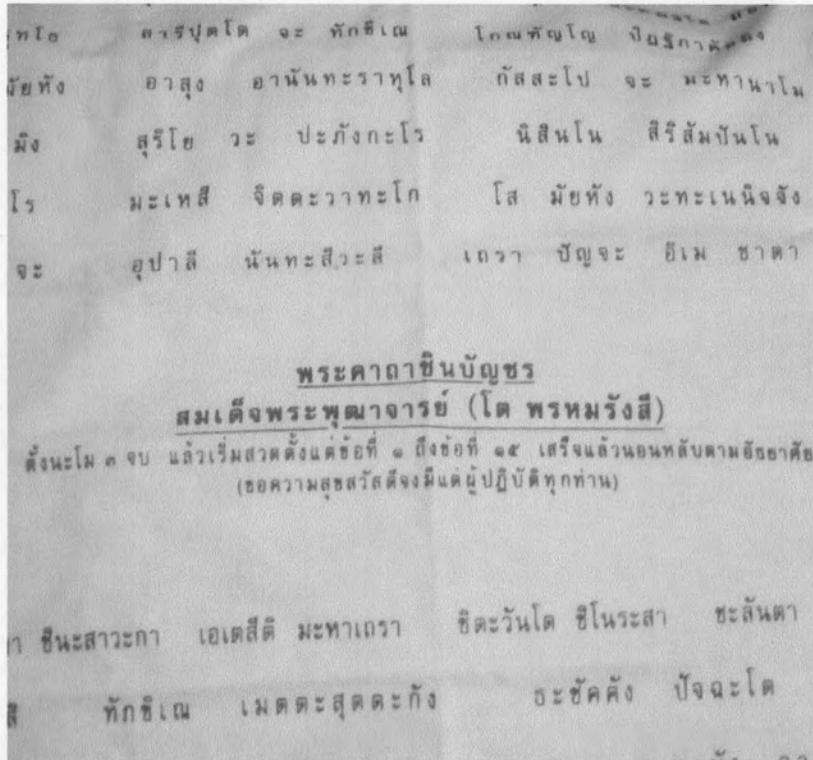 สารีปุตโต จะ ทักขิเณ โกณฑัญโญ ปัฏฐิภาคัสมิง
มัยหัง อาสุง อานันทะราหุโล กัสสะโป จะ มะหานาโม
มิง สุริโย วะ ปะภังกะโร นิสินโน สิริสัมปันโน
โร มะเหสี จิตตะวาทะโก โส มัยหัง วะทะเนนิจจัง
จะ อุปาลี นันทะสีวะลี เถรา ปัญจะ อิเม ชาตา
พระคาถาชินบัญชร
สมเด็จพระพุฒาจารย์ (โต พรหมรังสี)
ตั้งนะโม ๓ จบ แล้วเริ่มสวดตั้งแต่ข้อที่ ๑ ถึงข้อที่ ๑๕ เสร็จแล้วนอนหลับตามอัธยาศัย
(ขอความสุขสวัสดีจงมีแด่ผู้ปฏิบัติทุกท่าน)
ชินะสาวะกา เอเตสีติ มะหาเถรา ชิตะวันโต ชิโนระสา ชะลันตา
ทักขิเณ เมตตะสุตตะกัง ธะชัคคัง ปัจฉะโต